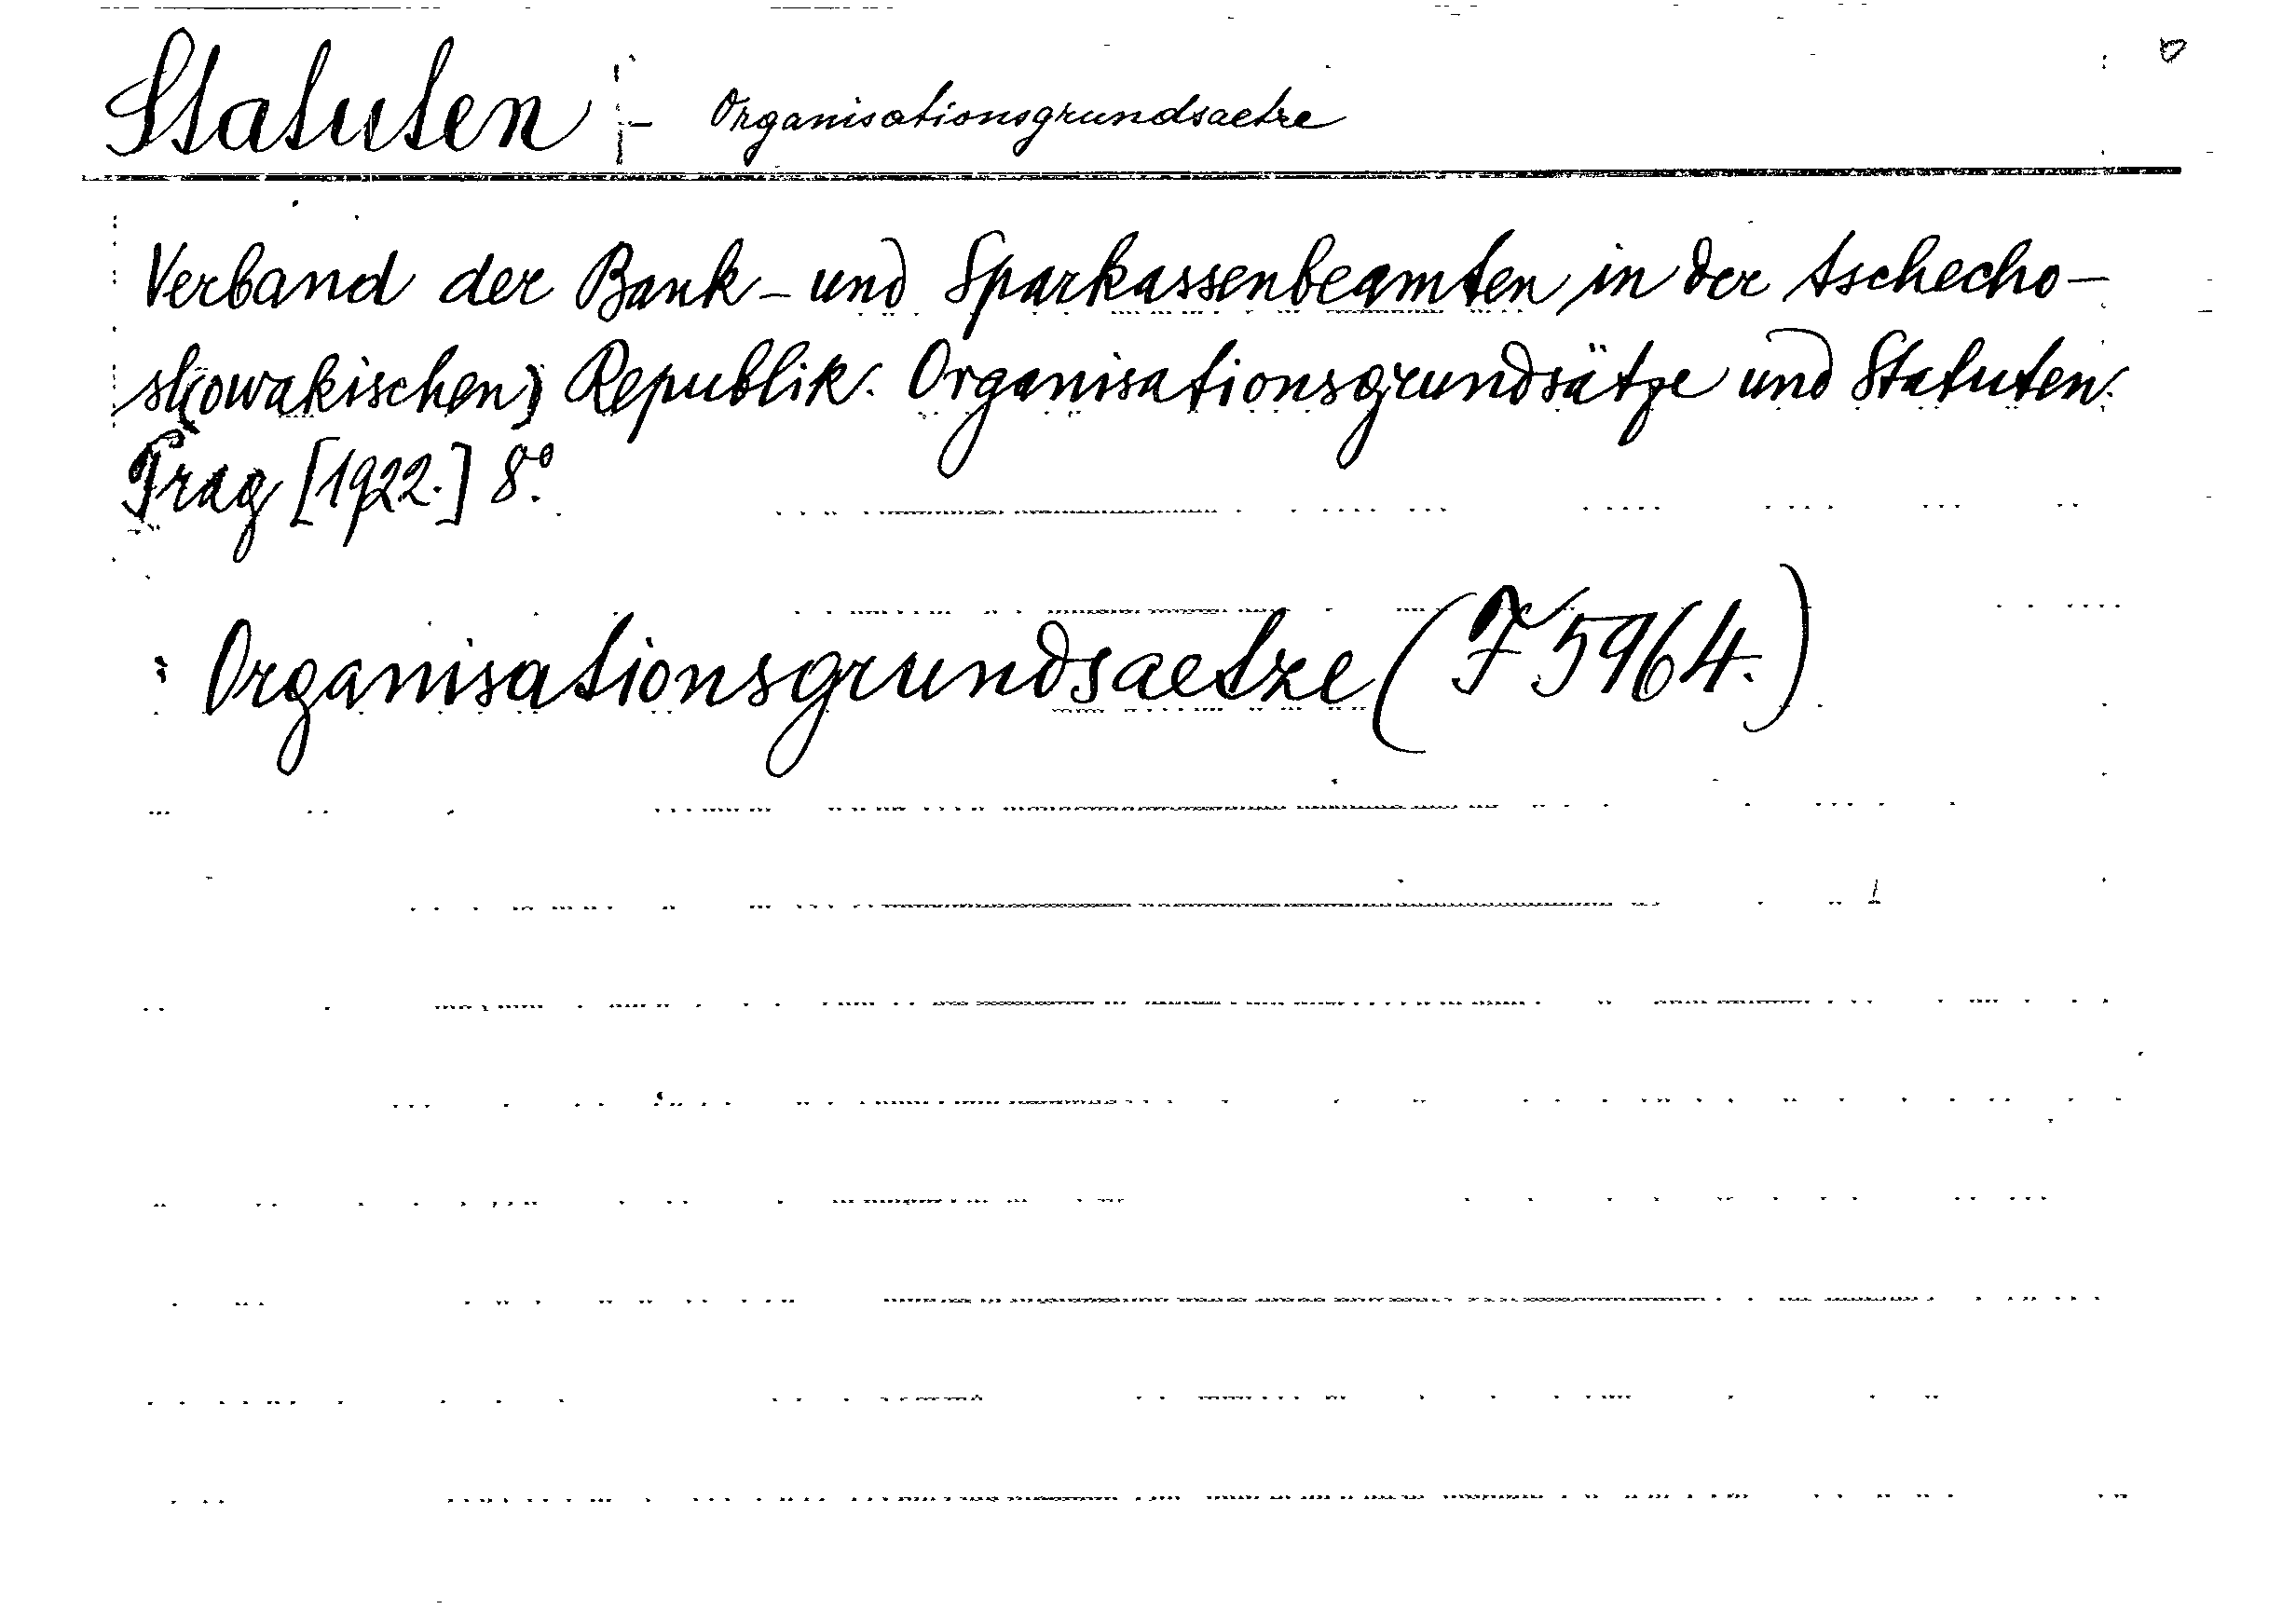 Statuten - Organisationsgrundsaetze
Verband der Bank- und Sparkassenbeamten in der tschecho-
sl(owakischen) Republik. Organisationsgrundsätze und Statuten.
Prag [1922.] 8°.
Organisationsgrundsaetze (F 5964.)